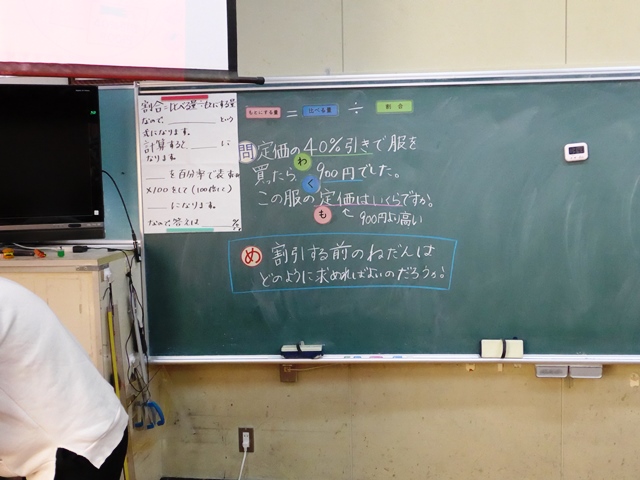 割合=比べる量÷もとにする量
なので、　　　という
式になります。
計算すると　　　に
なります。
　　　を百分率で表すと
×100をして(100倍して)
　　　になります。
なので答えは　　　%
もとにする量 = 比べる量 ÷ 割合
問 定価の40%引きで服を
わ
買ったら900円でした。
く
この服の定価はいくらですか。
も ←900円より高い
め 割引する前のねだんは
どのように求めればよいのだろうか?